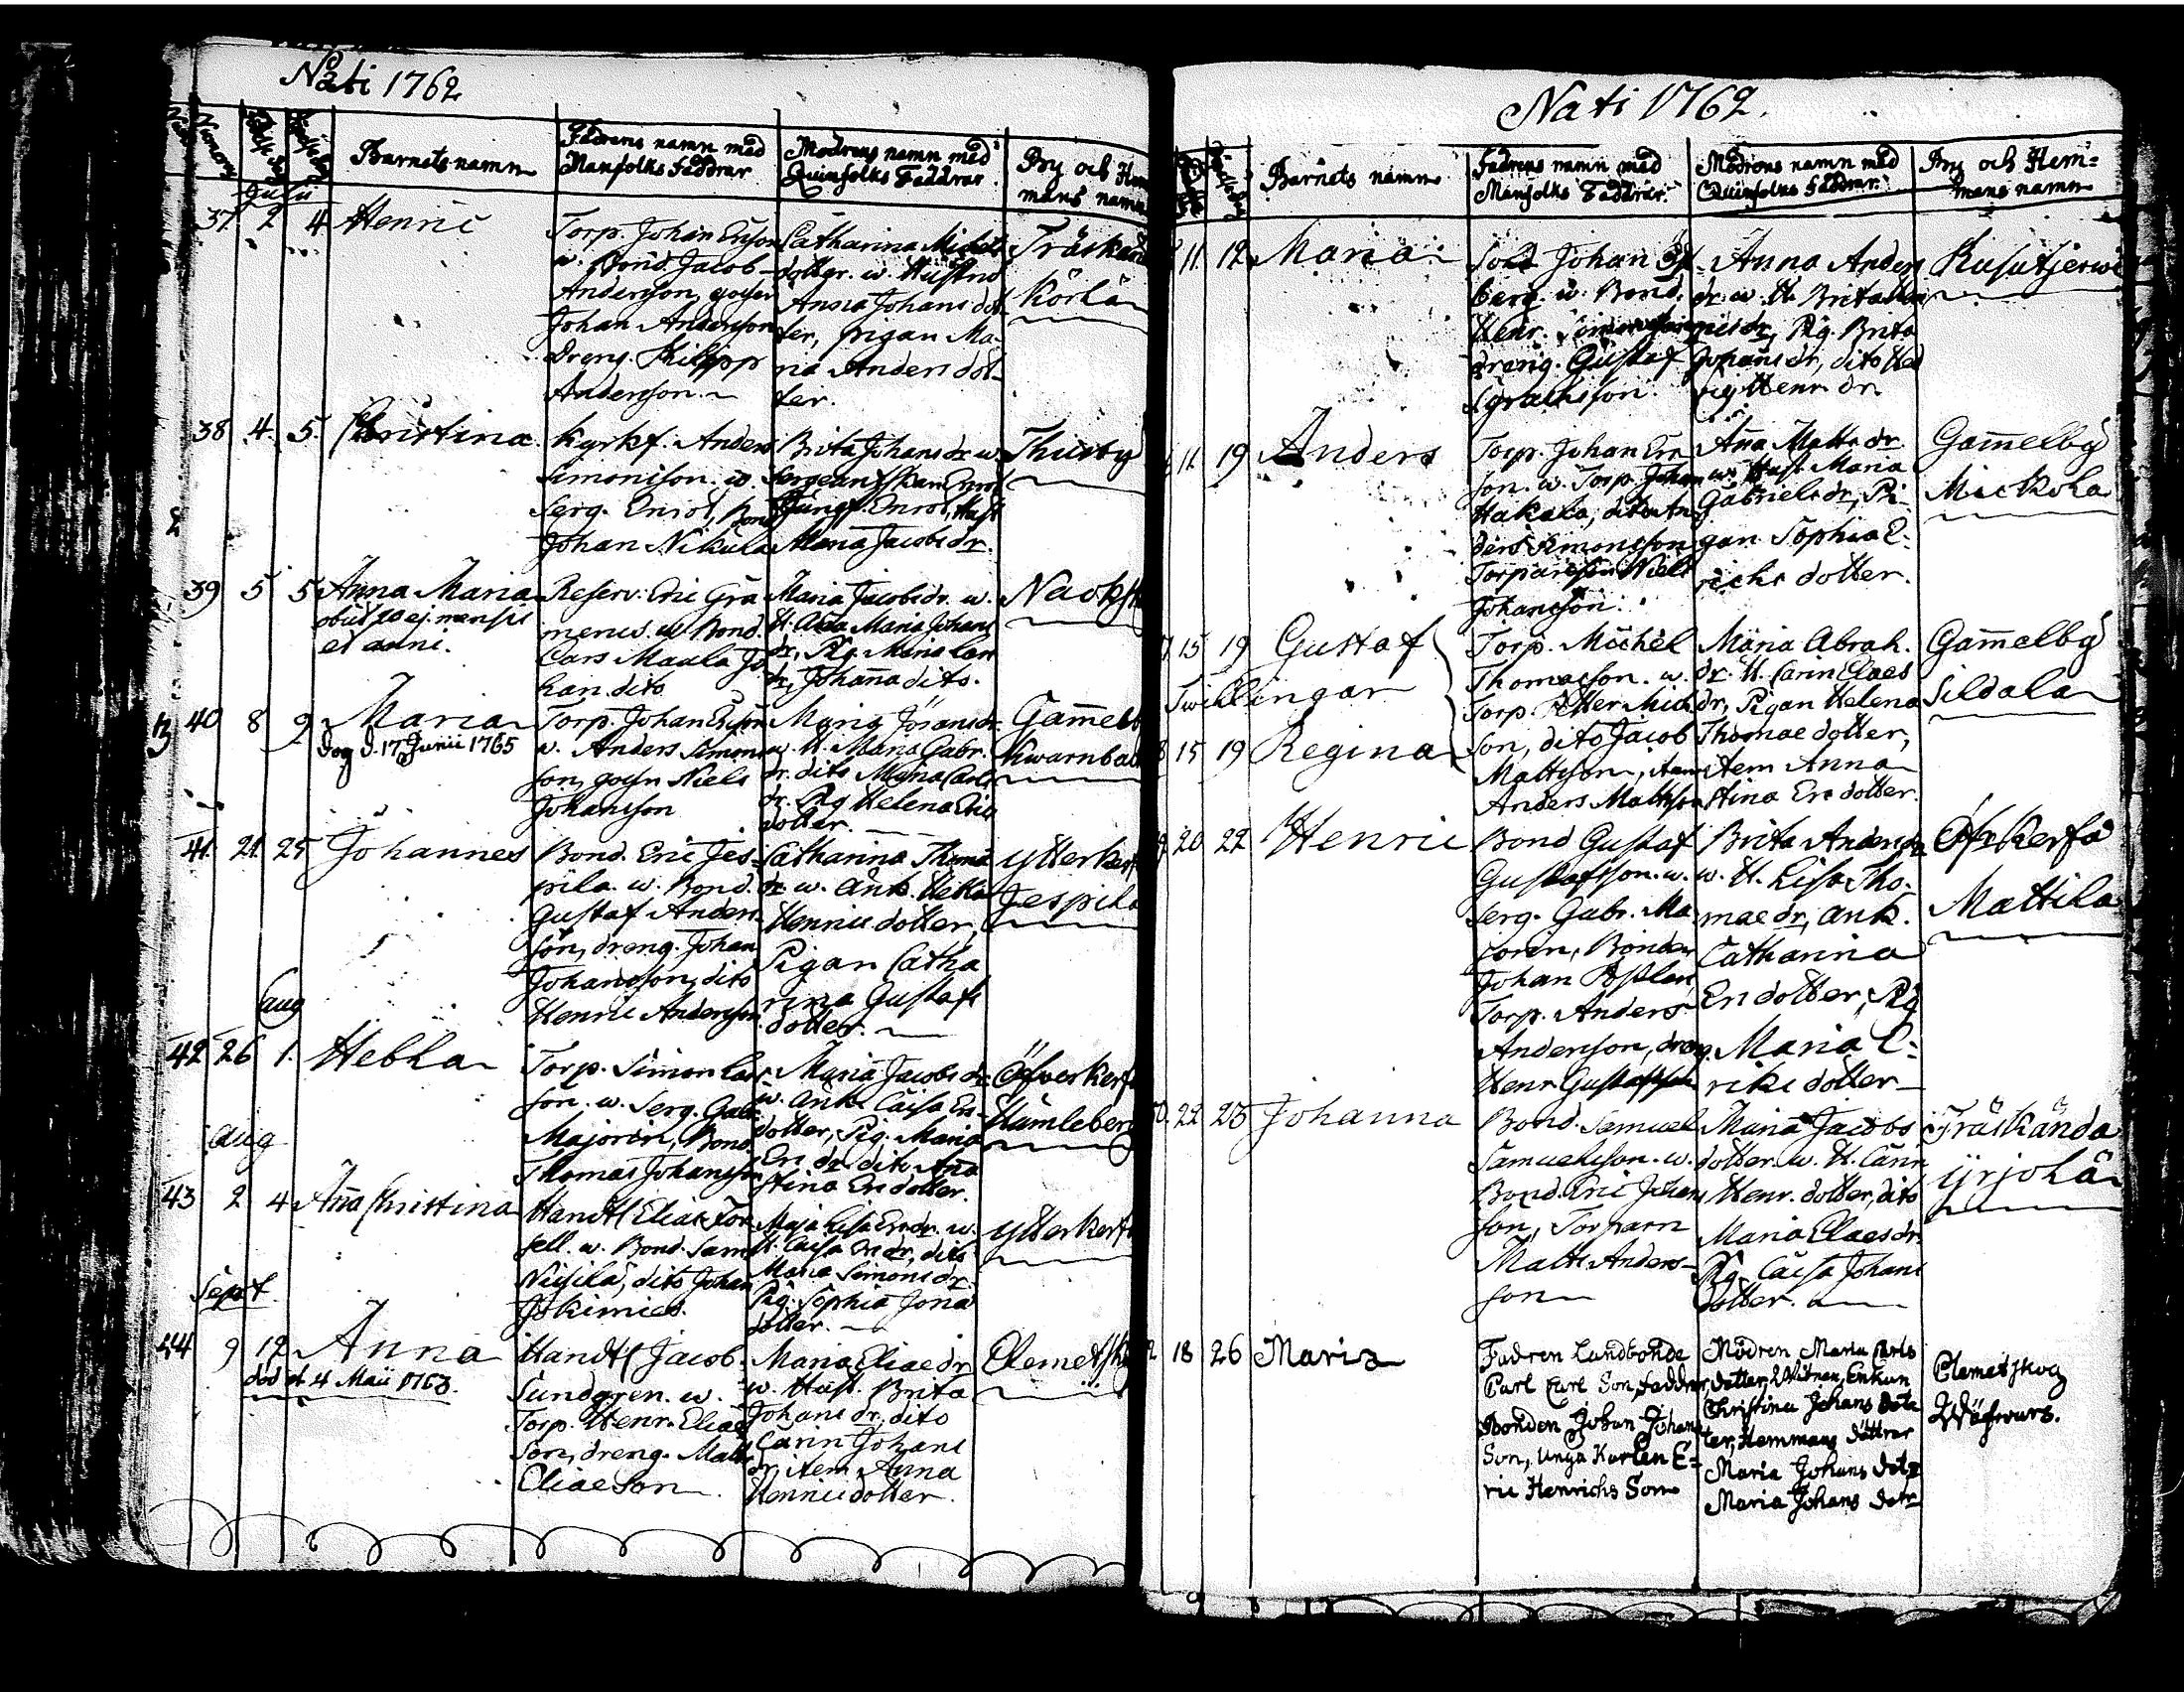 Nati 1762
Barnets namn
Fadrens namn med
Manfolks Faddrar
Modrens namn med
Quinfolks Faddrar
By och Hem
mans namn
Julii
37 2 4 Henric
Torp. Johan Ericson
w. Bond. Jacob
Anderson, gosen
Johan Anderson
Dreng. Philipp
Anderson
Catharina Michels
dotter. w. Hustro
Anna Johans dot
ter, pigan Ma
ria Anders dot
ter.
Träskän
Körkä
38 4 5 Christina
Kyrkf. Anders
Simonison. w.
Serg. Enrot, Bond
Johan Nikula
Brita Johans dr w
Sergeantskan Enrot
Jungf. Enrot, Hust
Maria Jacobs dr.
Thurby
39 5 5 Anna Maria
obiit 20 ej. mensis
et anni.
Reserv: Eric Gra
menius. w Bond.
Lars Maula Jo
han. dito
Maria Jacobs dr. w.
H. Maria Johans
dr, Pig. Maria Lars
dr, Johanna dito.
Nacksk
40 8 9 Maria
dog d. 17 Junii 1765
Torp. Johan Ericson
w. Anders Simons
son, gosen Niels
Johansson
Maria Jörans dr
w. H. Maria Gabr.
dr. dito Maria Carls
dr. Pig Helena Eric
dotter.
Gammelb
Kwarnback
41 21 25 Johannes
Bond. Eric Jes
pila. w. Bond.
Gustaf Anders
son, dreng. Johan
Johansson, dito
Henric Anderson
Catharina Thoma
dr w. Ank. Heka
Henric dotter,
Pigan Catha
rina Gustafs
dotter.
Ytterkerf
Jespila
Aug
42 26 1. Hebla
Torp. Simon Lars
son. w. Serg. Gabr.
Majorin, Bond
Thomas Johansson
Maria Jacobs dr
w. Ank. Caisa Er.
dotter, Pig. Maria
Er: dr. dito Ana
Stina Ers dotter.
Öfverkerf
Humleberg
Aug
43 2 4 Ana Christina
Handtl Elias For
sell. w. Bond. Sam
Nisila, dito Johan
Jokimies.
Maja Lisa Ers dr. w.
H. Caisa Er: dr, dito
Maria Simons dr.
Pig. Sophia Jona
dotter.
Ytterkerf
Sept
44 9 12 Anna
död d. 4 Maii 1763.
Handtl Jacob
Sundgren. w.
Torp. Henr. Elias
son, dreng. Matts
Eliae son
Maria Eliae dr
w. Hust. Brita
Johans dr, dito
Carin Johans
dr item Anna
Henric dotter.
Clemetsk
Nati 1762.
Barnets namn
Fadrens namn med
Manfolks Faddrar.
Modrens namn med
Quinfolks Faddrar.
By och Hem=
mans namn
11 12 Maria
Sold Johan
berg. w. Bond.
Henr.
dreng. Gustaf
Anna Anders
dr. w. H. Brita
dr, Pig. Brita
Johans dr, dito Hed
vig Henr dr.
Kusutjerwi
11 19 Anders
Torp. Johan Ers
son. w. Torp. Johan
Hakala, dito An
ders Simonsson
Niels
Johansson.
Aña Matts dr
w. Hust Maria
Gabriels dr, Pi
gan Sophia E
richs dotter.
Gammelby
Mickola
15 19 Gustaf
Twillingar
15 19 Regina
Torp. Michel
Thomasson. w.
Torp. Petter Mich
son, dito Jacob
Mattsson, item
Anders Mattson
Maria Abrah.
dr. H. Carin Claes
dr, Pigan Helena
Thomae dotter,
item Anna
Stina Ers dotter.
Gammelby
Sildala
20 22 Henric
Bond Gustaf
Gustafsson. w.
Serg. Gabr. Ma
jorin, Bonden
Johan
Torp. Anders
Anderson, dreng.
Henr Gustafsson
Brita Anders dr
w. H. Lisa Tho
mae dr, Ank.
Catharina
Ers dotter, Pig
Maria E
riks dotter
Öfr Kerfo
Mattila
22 23 Johanna
Bond. Samuel
Samuelsson. w.
Bond. Eric Johans
son, Torparn
Matts Anders
son
Maria Jacobs
dotter. w. H. Carin
Henr. dotter, dito
Maria Claes dr.
Pig. Caisa Johans
dotter.
Träskända
Yrjölä
18 26 Maria
Fadren Landbonde
Carl Carl Son, Faddrar,
Bonden Johan Johans
Son, Unga Karlen E=
ric Henrichs Son
Modren Maria Carls
dotter, Witnen, Enkan
Christina Johans dot
ter, Hemmans Döttrar
Maria Johans dotr
Maria Johans dotr
Clemetskog
Wäfvars.